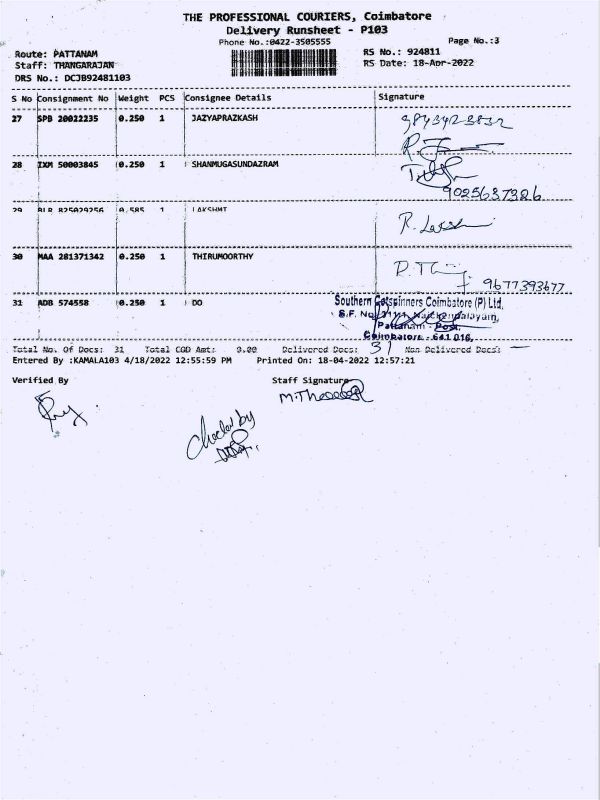 THE PROFESSIONAL COURIERS, Coimbatore
Delivery Runsheet - P103
Phone No.:0422-3505555
Page No.:3
Route: PATTANAM
Staff: THANGARAJAN
DRS No.: DCJB92481103
RS No.: 924811
RS Date: 18-Apr-2022
S No Consignment No Weight PCS Consignee Details Signature
27 SPB 20022235 0.250 1 JAZYAPRAZKASH
9843423832
28 IXM 50003845 0.250 1 SHANMUGASUNDAZRAM
9025637326
29 BLR 825029256 0.585 1 LAKSHMI
R. Lakshmi
30 MAA 281371342 0.250 1 THIRUMOORTHY
9677393677
31 ADB 574558 0.250 1 DO
Southern Cotspinners Coimbatore (P) Ltd,
S.F. No. Naickenpalayam,
Pattanam - Post,
Coimbatore - 641 016.
Total No. Of Docs: 31 Total COD Amt: 0.00 Delivered Docs: 31 Non Delivered Docs: —
Entered By :KAMALA103 4/18/2022 12:55:59 PM Printed On: 18-04-2022 12:57:21
Verified By Staff Signature